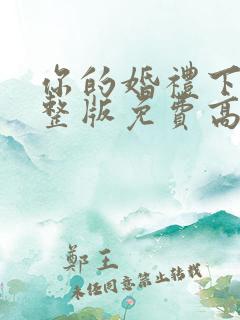 你的婚禮下
整版免費高
鄭王
未经同意禁止转载